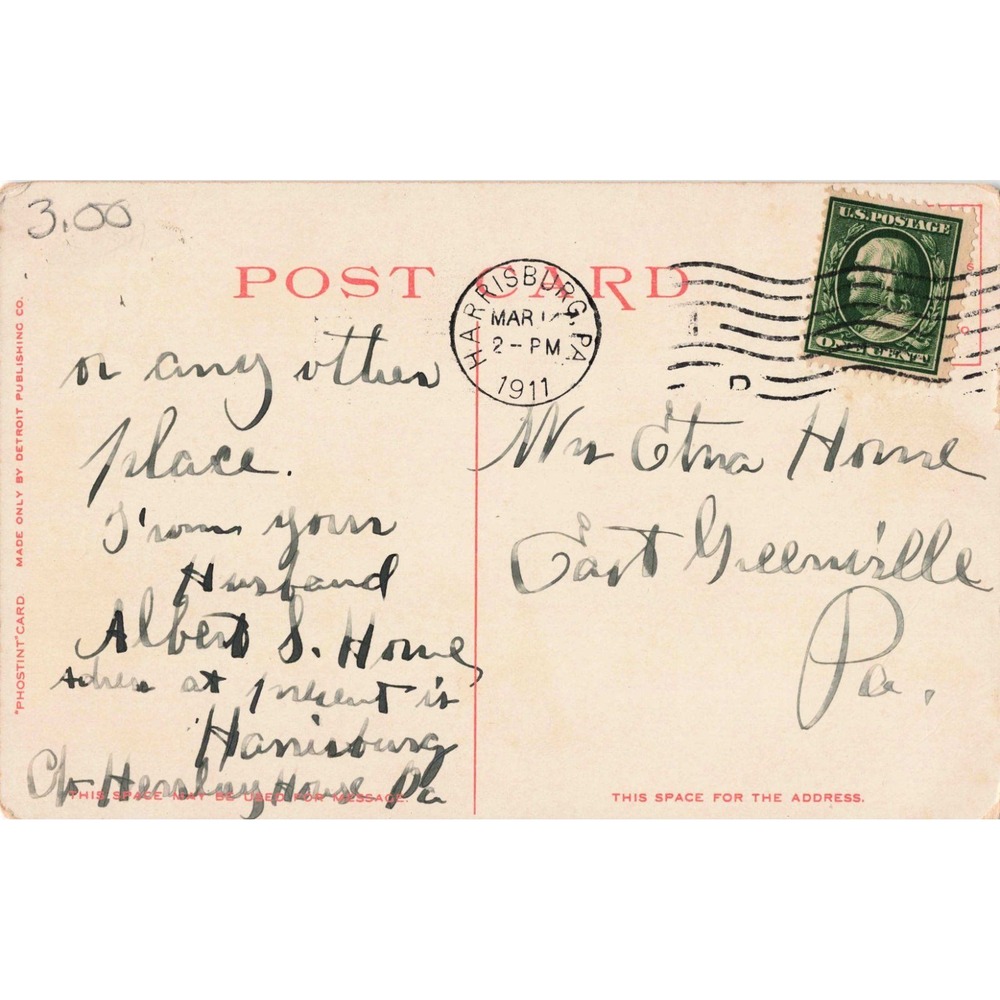 3.00
POST CARD
U.S. POSTAGE
ONE CENT
HARRISBURG, PA
MAR
2-PM
1911
D
or any other
place.
From your
Husband
Albert S. Horne
Adress at present is
Harrisburg
C/o Hershey House Pa
Mrs Etna Horne
East Greenville
Pa.
THIS SPACE MAY BE USED FOR MESSAGE.
THIS SPACE FOR THE ADDRESS.
"PHOSTINT" CARD MADE ONLY BY DETROIT PUBLISHING CO.